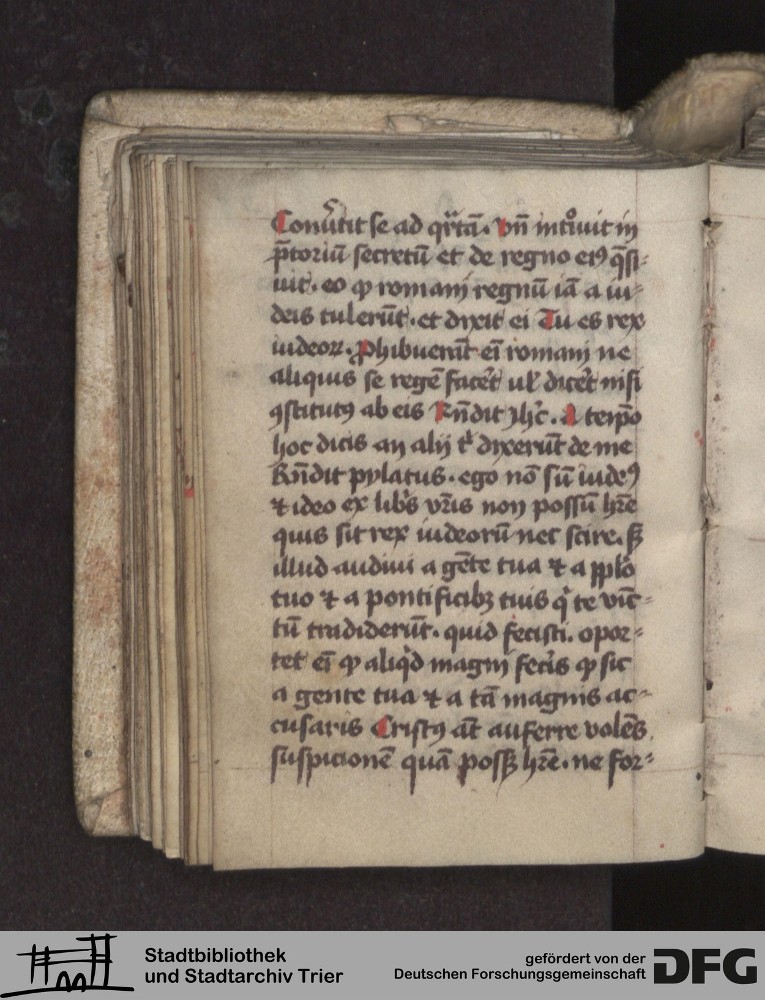 Conũtit se ad qrtã. vñ intͦuit in
p̃toriũ secretũ et de regno eiꝰ q̃si-
uit. eo ꝙ romani regnũ iã a iu-
deis tulerũt. et dixit ei Tu es rex
iudeoꝝ. Phibuerũt ei͂ romani ne
aliquis se regẽ facẽt ul̃ dicẽt nisi
ꝯstitutꝰ ab eis Rñdit ihc̃. A
hoc dicis an alij tͥ dixerũt de me
Rñdit pylatus. ego nõ sũ iudeꝰ
⁊ ideo ex libͥs vr̃is non possũ hr̃e
quis sit rex iudeorũ nec scire. sꝫ
illud audiui a gẽte tua ⁊ a pplõ
tuo ⁊ a pontificibꝫ tuis qͥ te vinc̃-
tũ tradiderũt. quid fecisti. opor-
tet ei͂ ꝙ aliqͥd magni fecͥs ꝙ sic
a gente tua ⁊ a tã magnis ac-
cusaris Cristꝰ aũt auferre volẽs
suspicionẽ quã possꝫ hr̃e. ne for-
Stadtbibliothek
und Stadtarchiv Trier
gefördert von der
Deutschen Forschungsgemeinschaft
DFG